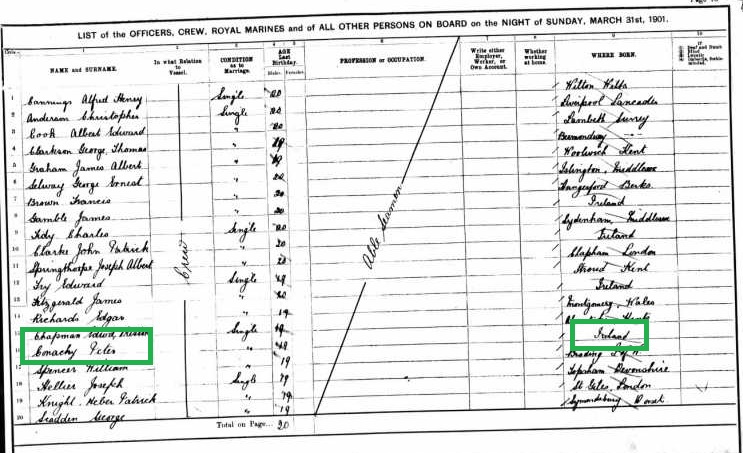 LIST of the OFFICERS, CREW, ROYAL MARINES and of ALL OTHER PERSONS ON BOARD on the NIGHT of SUNDAY, MARCH 31st, 1901.
NAME and SURNAME. In what Relation to Vessel. CONDITION as to Marriage. AGE Last Birthday. Males. Females. PROFESSION or OCCUPATION. Write either Employer, Worker, or Own Account. Whether working at home. WHERE BORN.
1 Cannings Alfred Henry Single 20 Wilton Wilts
2 Anderson Christopher Single 20 Liverpool Lancashire
3 Cook Albert Edward " 20 Lambeth Surrey
4 Clarkson George Thomas " 19 Bermondsey
5 Graham James Albert " 19 Woolwich Kent
6 Selway George Ernest " 20 Islington, Middlesex
7 Brown Francis " 20 Hungerford Berks
8 Gamble James " 20 Ireland
9 Tidy Charles Single 20 Sydenham, Middlesex
10 Clarke John Patrick " 20 Ireland
11 Springthorpe Joseph Albert " 20 Clapham London
12 Fry Edward Single Kent
13 Fitzgerald James " 20 Ireland
14 Richards Edgar " 19 Montgomery, Wales
15 Chapman Single 19
16 Conachy Peter " Ireland
17 Spencer William " 19 Brading I of W
18 Hellier Joseph Single 19 Topsham Devonshire
19 Knight Heber Patrick " 19 St Giles, London
20 Scadden George " 19 Symondsbury Dorset
Crew
Able Seamen
Total on Page... 20